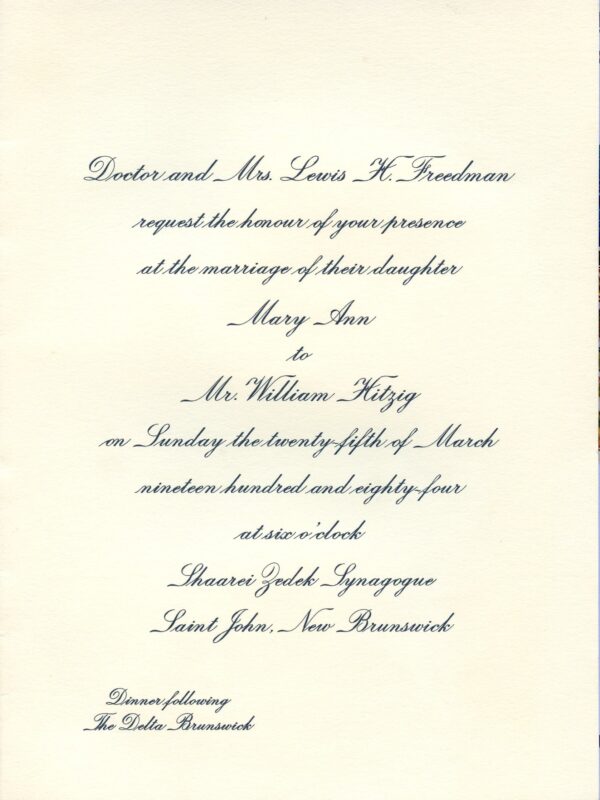 Doctor and Mrs. Lewis H. Freedman
request the honour of your presence
at the marriage of their daughter
Mary Ann
to
Mr. William Hitzig
on Sunday the twenty-fifth of March
nineteen hundred and eighty-four
at six o'clock
Shaarei Zedek Synagogue
Saint John, New Brunswick
Dinner following
The Delta Brunswick